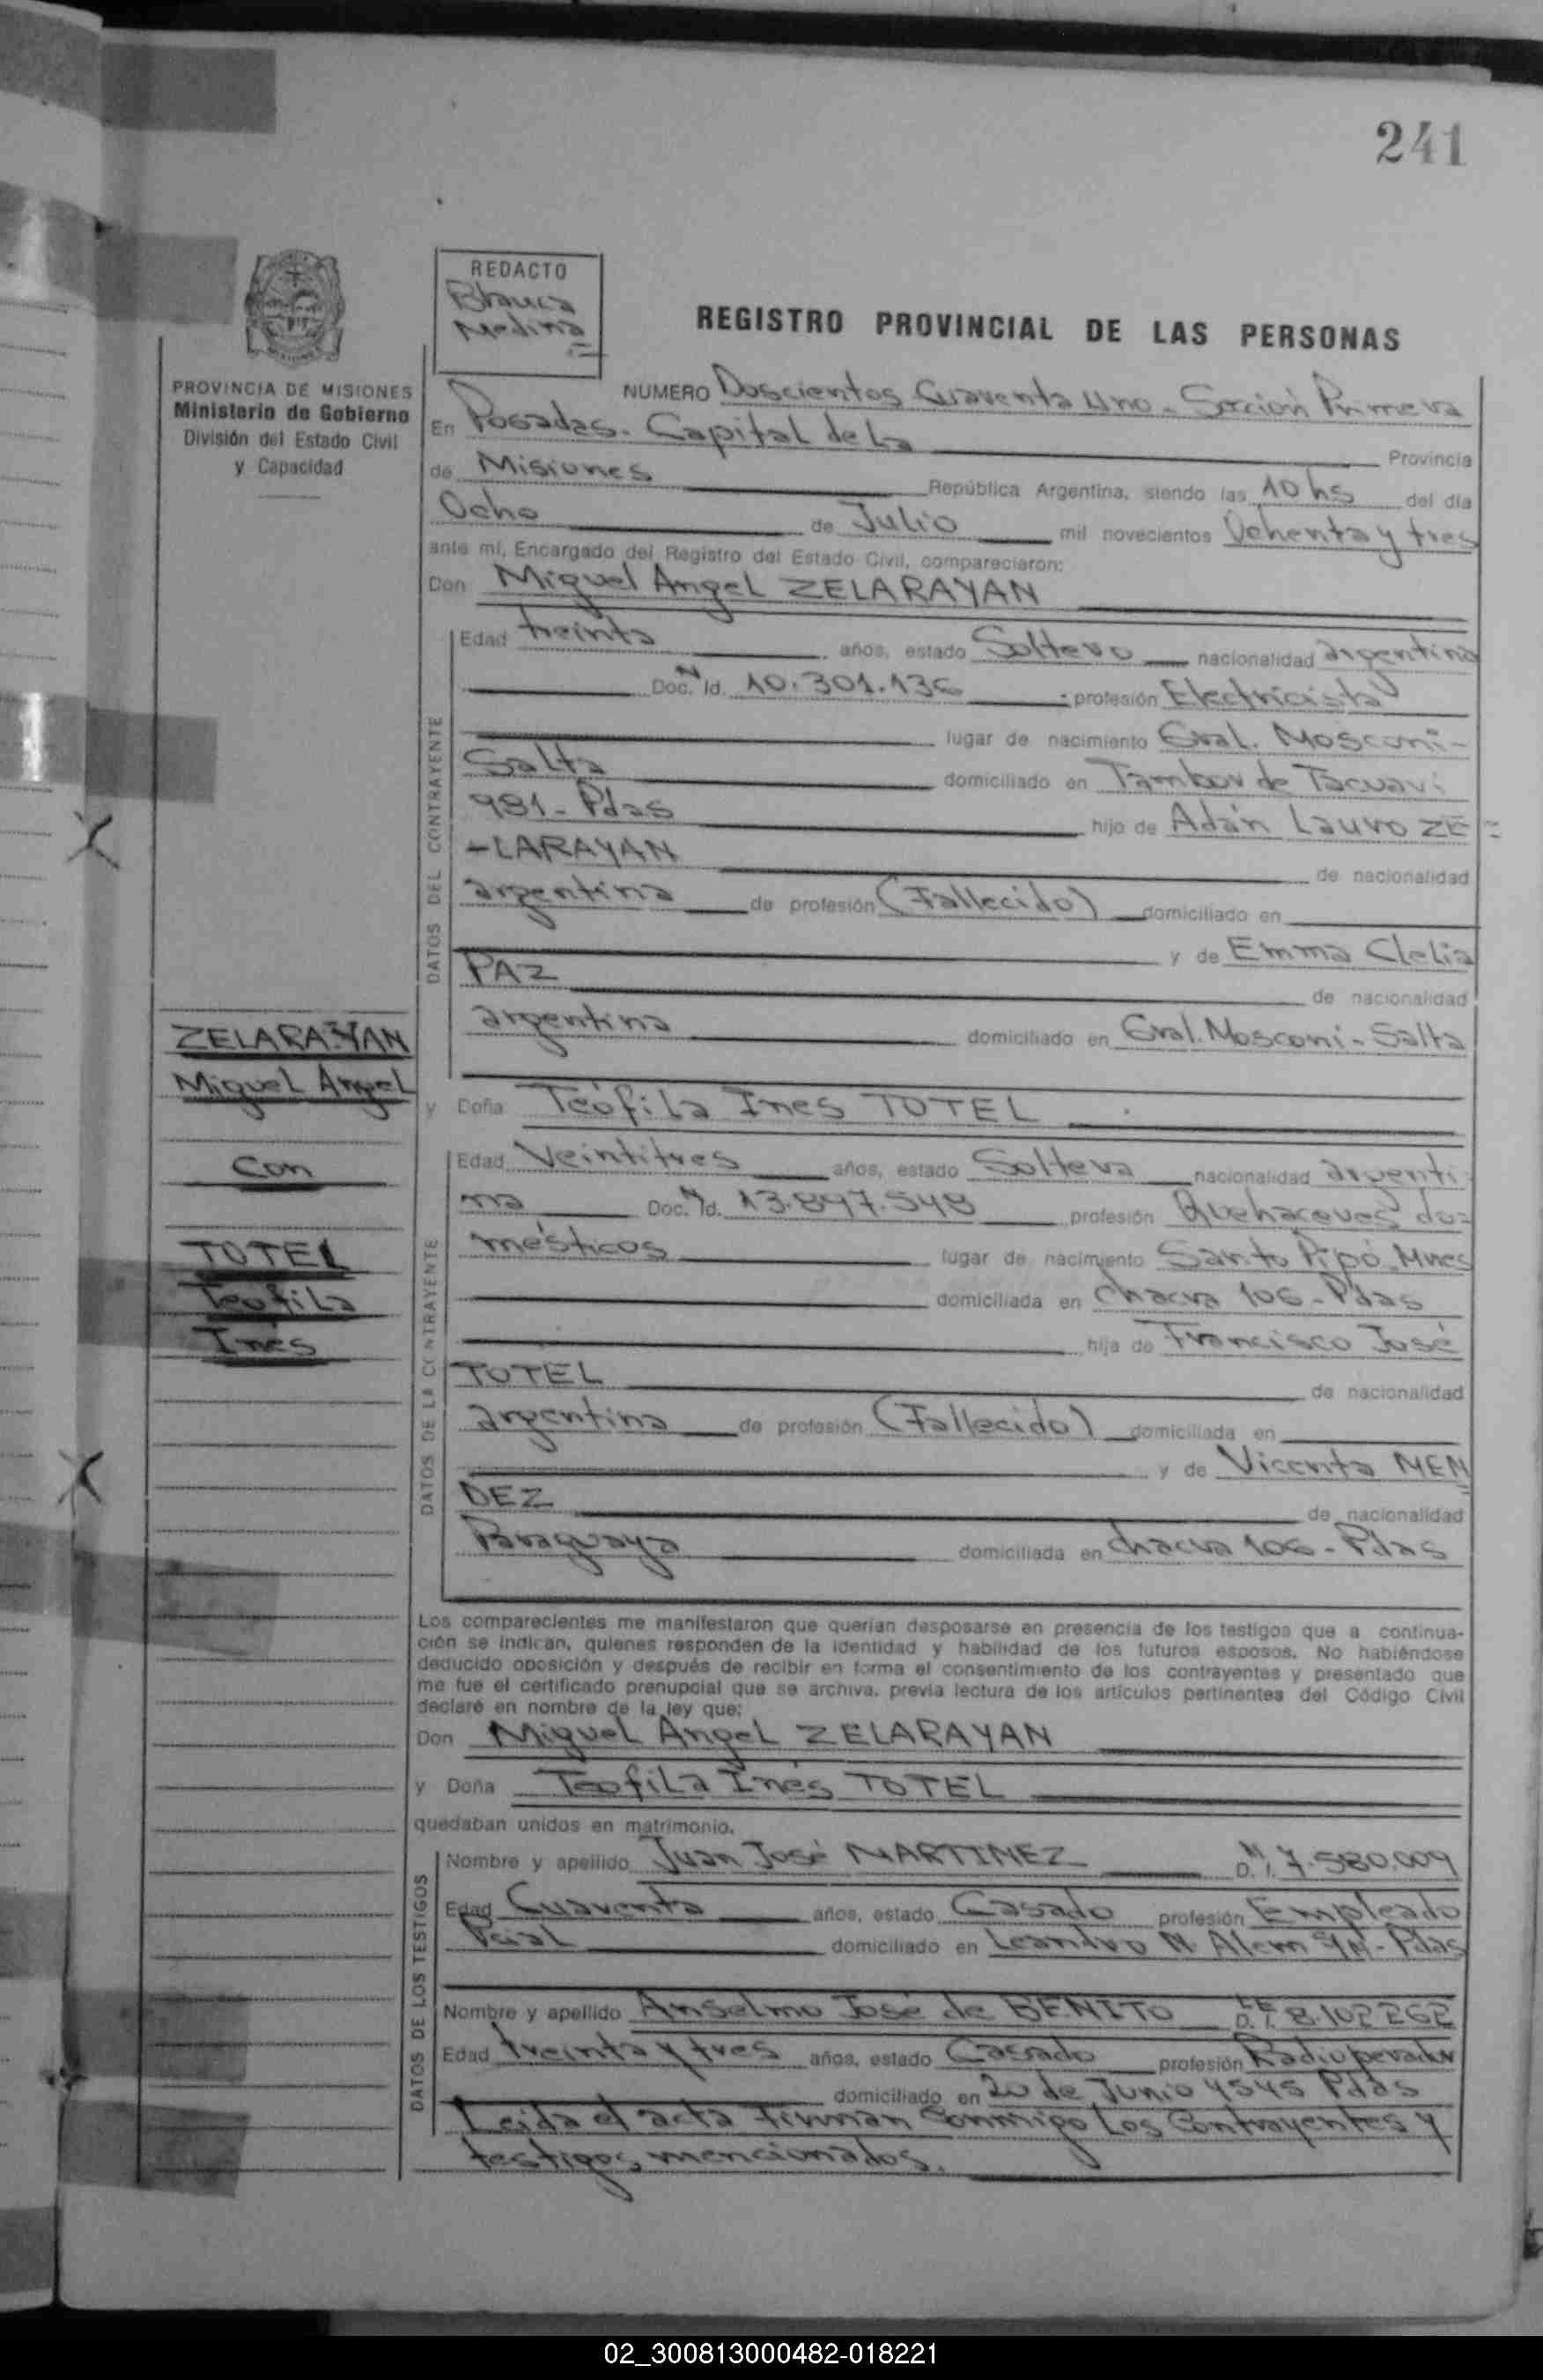 241
REDACTO
Blanca
Medina
REGISTRO PROVINCIAL DE LAS PERSONAS
PROVINCIA DE MISIONES
Ministerio de Gobierno
División del Estado Civil
y Capacidad
NUMERO Doscientos Cuarenta uno - Sección Primera
En Posadas. Capital de La Provincia
de Misiones República Argentina, siendo las 10 hs del día
Ocho de Julio mil novecientos Ochenta y tres
ante mí, Encargado del Registro del Estado Civil, comparecieron:
Don Miguel Angel ZELARAYAN
DATOS DEL CONTRAYENTE
Edad treinta años, estado Soltero nacionalidad argentina
Doc. N Id. 10.301.136 profesión Electricista
lugar de nacimiento Gral. Mosconi-
Salta domiciliado en Tambor de Tacuarí
981 - Pdas hijo de Adán Lauro ZE=
-LARAYAN de nacionalidad
argentina de profesión (Fallecido) domiciliado en
y de Emma Clelia
PAZ de nacionalidad
argentina domiciliado en Gral. Mosconi - Salta
ZELARAYAN
Miguel Angel
Con
TOTEL
Teofila
Inés
y Doña Teófila Ines TOTEL
DATOS DE LA CONTRAYENTE
Edad Veintitres años, estado Soltera nacionalidad argenti
na Doc. N Id. 13.897.548 profesión Quehaceres do=
mésticos lugar de nacimiento Santo Pipó. Mnes
domiciliada en Chacra 106 - Pdas
hija de Francisco José
TOTEL de nacionalidad
argentina de profesión (Fallecido) domiciliada en
y de Vicenta MEN
DEZ de nacionalidad
Paraguaya domiciliada en chacra 106 - Pdas
Los comparecientes me manifestaron que querían desposarse en presencia de los testigos que a continua-
ción se indican, quienes responden de la identidad y habilidad de los futuros esposos. No habiéndose
deducido oposición y después de recibir en forma el consentimiento de los contrayentes y presentado que
me fue el certificado prenupcial que se archiva, previa lectura de los artículos pertinentes del Código Civil
declaré en nombre de la ley que:
Don Miguel Angel ZELARAYAN
y Doña Teofila Inés TOTEL
quedaban unidos en matrimonio.
DATOS DE LOS TESTIGOS
Nombre y apellido Juan José MARTINEZ D. N. I. 7.580.009
Edad Cuarenta años, estado Casado profesión Empleado
Pcial domiciliado en Leandro N. Alem S/N - Pdas
Nombre y apellido Anselmo José de BENITO D. I. LE 8.102.262
Edad treinta y tres años, estado Casado profesión Radioperador
domiciliado en 20 de Junio 4545 Pdas
Leida el acta firman Conmigo Los Contrayentes y
testigos mencionados.
02_300813000482-018221